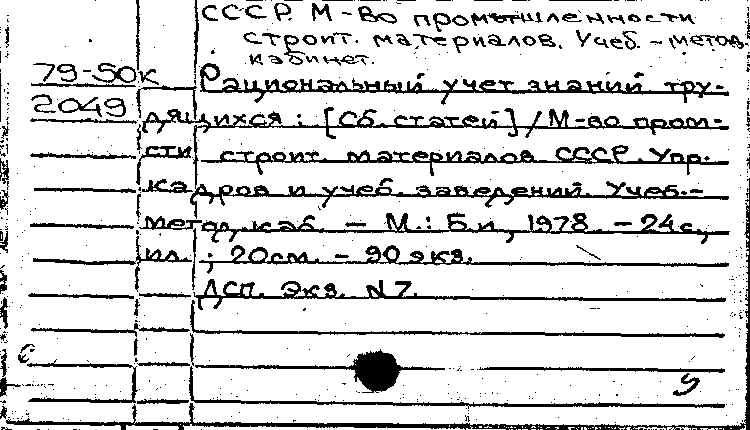 СССР. М-во промышленности
строит. материалов. Учеб.-метод.
кабинет.
79-50к Рациональный учет знаний тру-
2049 дящихся : [Сб. статей] / М-во пром-
сти строит. материалов СССР. Упр.
кадров и учеб. заведений. Учеб.-
метод. каб. - М.: Б.и, 1978. - 24с.,
ил. ; 20см. - 90 экз.
ДСП. Экз. N 7.